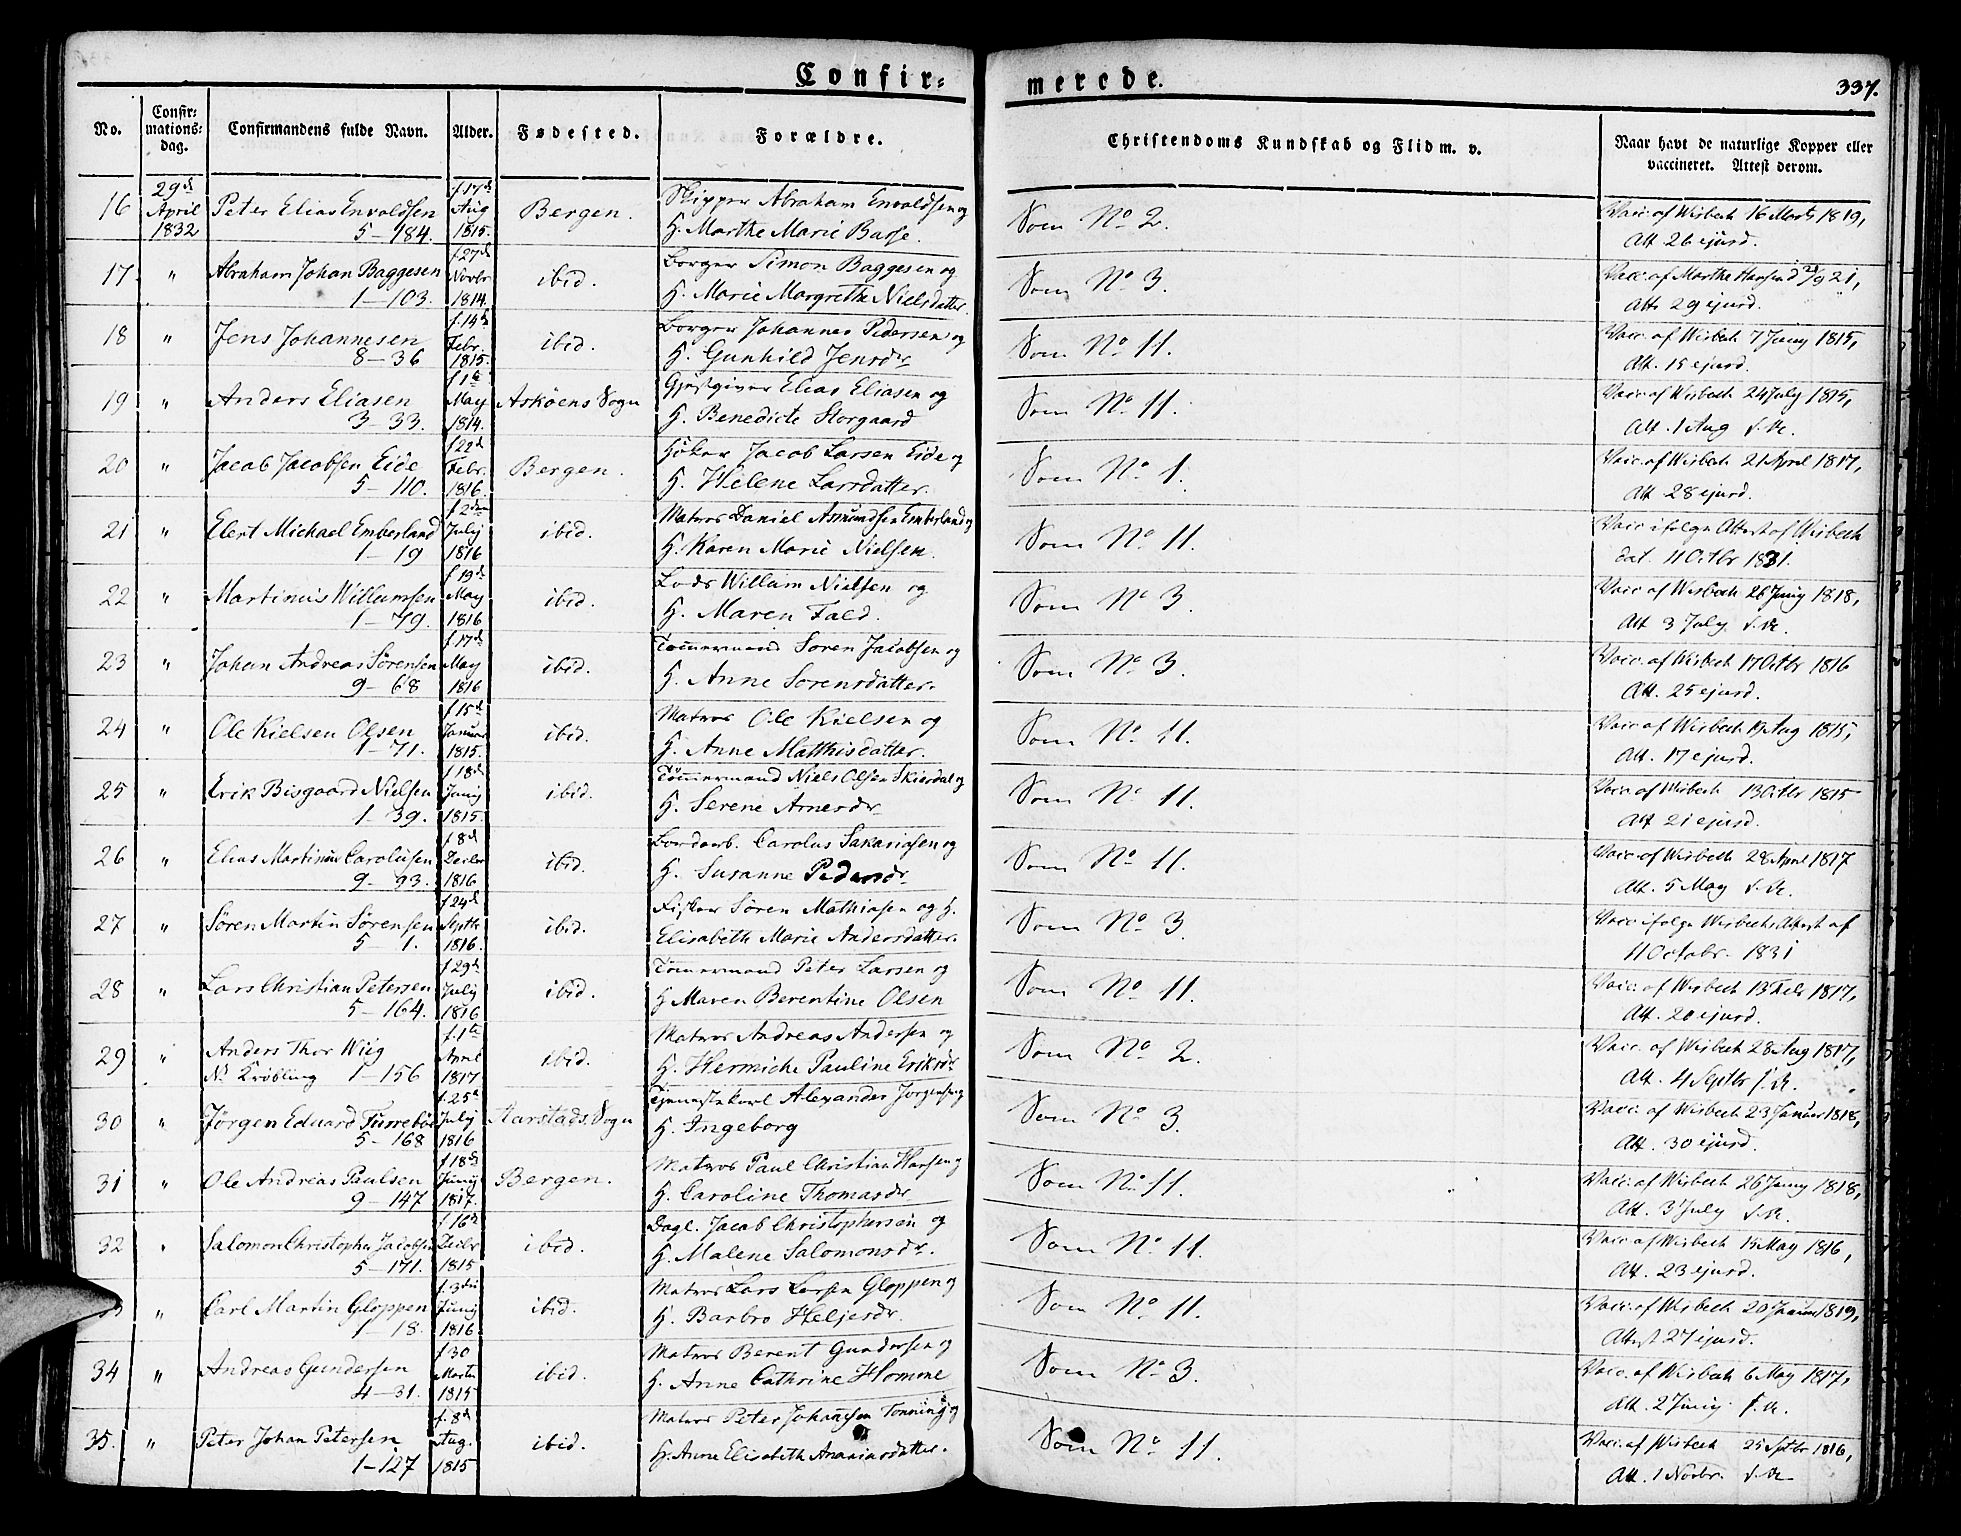 Confir=
merede.
337.
No.
Confir-
mations-
dag.
Confirmandens fulde Navn.
Alder.
Fødested.
Forældre.
Christendoms Kundskab og Flid m. v.
Naar havt de naturlige Kopper eller
vaccineret. Attest derom.
16 29d April 1832 Peter Elias Envoldsen 5-184. f. 17d Aug 1815. Bergen. Skipper Abraham Envoldsen og H. Marthe Marie Basse. Som No 2. Vacc. af Wisbech 16 Marts 1819, Att. 26 ejusd.
17 " Abraham Johan Baggesen 1-103. f. 27d Novbr 1814. ibid. Borger Simon Baggesen og H. Marie Margrethe Nielsdatter. Som No 3. Vacc. af Marthe Hansen d 21, Att. 29 ejusd.
18 " Jens Johannesen 8-36 f. 14d Febr. 1815. ibid. Borger Johannes Pedersen og H. Gunhild Jensdr Som No 11. Vacc. af Wisbech 7 Juny 1815, Att. 15 ejusd.
19 " Anders Eliasen 3-33. f 1te May 1814. Askøens Sogn Gjestgiver Elias Eliasen og H. Benedicte Storgaard Som No 11. Vacc. af Wisbech 24 July 1815, Att. 1 Aug s. A.
20 " Jacob Jacobsen Eide 5-110. f 22d Febr. 1816. Bergen. Høker Jacob Larsen Eide og H. Helene Larsdatter. Som No 1. Vacc. af Wisbech 21 April 1817, Att. 28 ejusd.
21 " Elert Michael Emberland 1-19 f 2den July 1816 ibid. Matros Daniel Asmundsen Emberland og H. Karen Marie Nielsen. Som No 11. Vacc ifølge Attest af Wisbech dat. 11 Octbr 1831.
22 " Martinus Willumsen 1-79. f 19de May 1816 ibid. Lods Willum Nielsen og H. Maren Fald. Som No 3. Vacc af Wisbech 26 Juny 1818, Att 3 July s. A.
23 " Johan Andreas Sørensen 9-68 f 17de May 1816 ibid. Tømmermand Søren Jacobsen og H. Anne Sørensdatter. Som No 3. Vacc. af Wisbech 17 Octbr 1816 Att. 25 ejusd.
24 " Ole Kielsen Olsen 1-71. f 15d Januar 1815. ibid. Matros Ole Kielsen og H. Anne Matthisdatter. Som No 11. Vacc af Wisbech Aug 1815, Att. 17 ejusd.
25 " Erik Bisgaard Nielsen 1-39. f 18d Juny 1815. ibid. Tømmermand Niels Olsen Skiesdal og H. Serene Arnesdr Som No 11. Vacc. af Wisbech 13 Octbr 1815 Att 21 ejusd.
26 " Elias Martinus Carolusen 9-93. f 8d Decbr 1816 ibid. Bordarb. Carolus Sakariasen og H. Susanne Pedersdr Som No 11. Vacc. af Wisbech 28 April 1817 Att. 5 May s. A.
27 " Søren Martin Sørensen 5-1. f 24d Septbr 1816. ibid. Fisker Søren Mathiasen og H. Elisabeth Marie Andersdatter. Som No 3. Vacc ifølge Wisbechs Attest af 11 Octobr. 1831
28 " Lars Christian Petersen 5-164. f 29d July 1816 ibid. Tømmermand Peter Larsen og H Maren Berentine Olsen Som No 11. Vacc. af Wisbech 13 Febr 1817, Att. 20 ejusd.
29 " Anders Thor Wiig No Krøbling 1-156 f. 1te April 1817. ibid. Matros Andreas Andersen og H. Hermiche Pauline Eriksdr Som No 2. Vacc. af Wisbech 28 Aug 1817, Att. 4 Septbr s. A.
30 " Jørgen Eduard Turrebøe 5-168 f. 25d July 1816 Aarstads Sogn Tjenestekarl Alexander Jørgensen og H. Ingeborg Som No 3. Vacc. af Wisbech 23 Januar 1818, Att. 30 ejusd.
31 " Ole Andreas Paulsen 9-147 f 18de Juny 1817. Bergen. Matros Paul Christian Hansen og H. Caroline Thomasdr. Som No 11. Vacc. af Wisbech 26 Juny 1818, Att. 3 July s. A.
32 " Salomon Christopher Jacobsen 5-171. f 16d Decbr 1815 ibid. Dagl. Jacob Christophersen og H. Malene Salomonsdr. Som No 11. Vacc. af Wisbech 15 May 1816, Att. 23 ejusd.
3 " Carl Martin Gloppen 1-18. f. 3die Juny 1816. ibid. Matros Lars Larsen Gloppen og H. Barbro Heljesdr. Som No 11. Vacc. af Wisbech 20 Januar 1819, Attest 27 ejusd.
34 " Andreas Gundersen 4-31. f. 30 Marts 1815 ibid. Matros Berent Gundersen og H. Anne Cathrine Homme Som No 3. Vacc. af Wisbech 6 May 1817, Att. 2 Juny s. A.
35. " Peter Johan Petersen 1-127 f. 8d Aug. 1815 ibid. Matros Peter Johannesen Tonning og H. Anne Elisabeth Ananiasdatter. Som No 11. Vacc. af Wisbech 25 Septbr 1816, Att. 1 Novbr. s. A